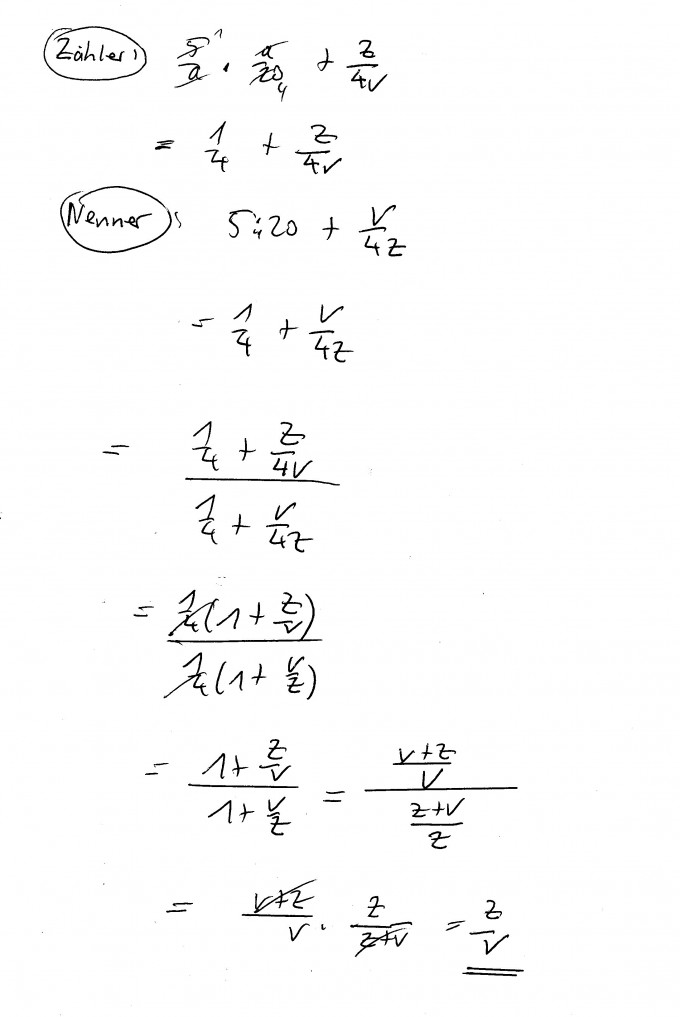 Zähler: 5/a · a/20 + z/4v
1
4
= 1/4 + z/4v
Nenner: 5:20 + v/4z
4
= 1/4 + v/4z
= (1/4 + z/4v)/(1/4 + v/4z)
= (1/4(1 + z/v))/(1/4(1 + v/z))
= (1 + z/v)/(1 + v/z) = ((v+z)/v)/((z+v)/z)
= (v+z)/v · z/(z+v) = z/v